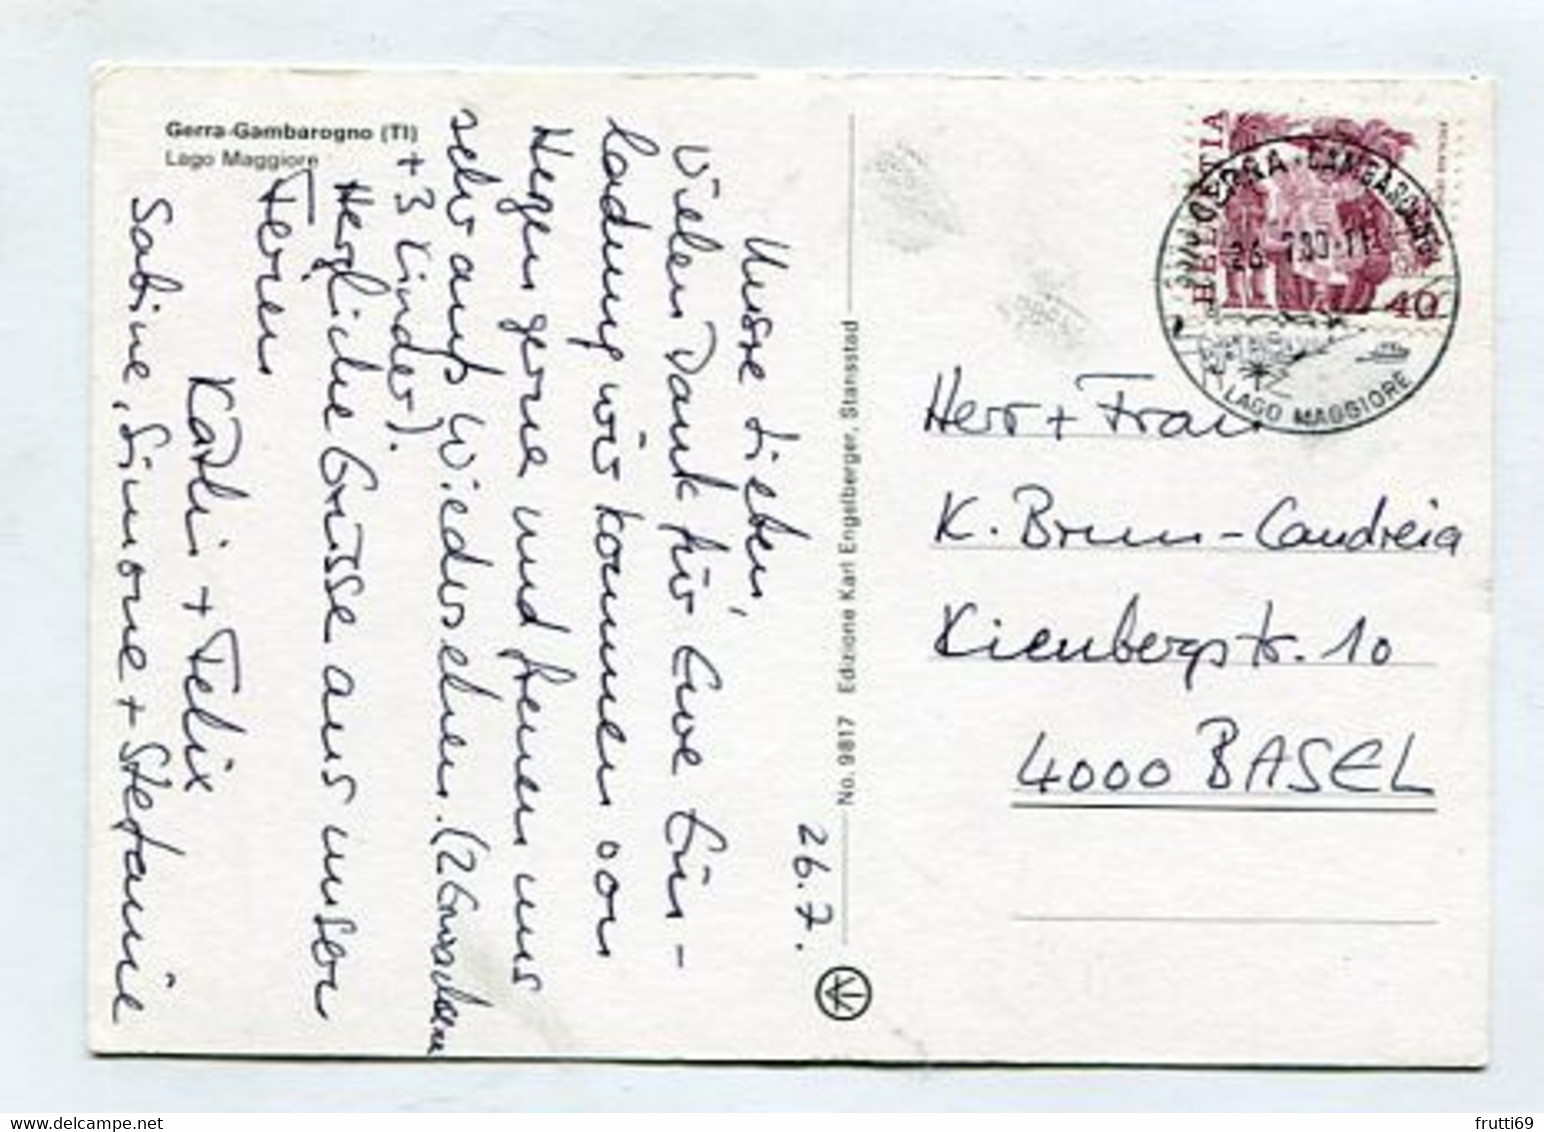 Gerra-Gambarogno (TI)
Lago Maggiore
26.7.
Unsre Lieben,
Vielen Dank für Eure Ein-
ladung wir kommen von
Herzen gerne und freuen uns
sehr aufs Wiedersehen. (2 Erwachsene
+ 3 Kinder).
Herzliche Grüsse aus unseren
Ferien
Käthi + Felix
Sabine, Simone + Stefanie
No. 9817 Edizione Karl Engelberger, Stansstad
HELVETIA
40
GERRA-GAMBAROGNO
26.7.
-11
LAGO MAGGIORE
Herr + Frau
K. Brun-Candreia
Kienbergstr. 10
4000 BASEL
frutti69